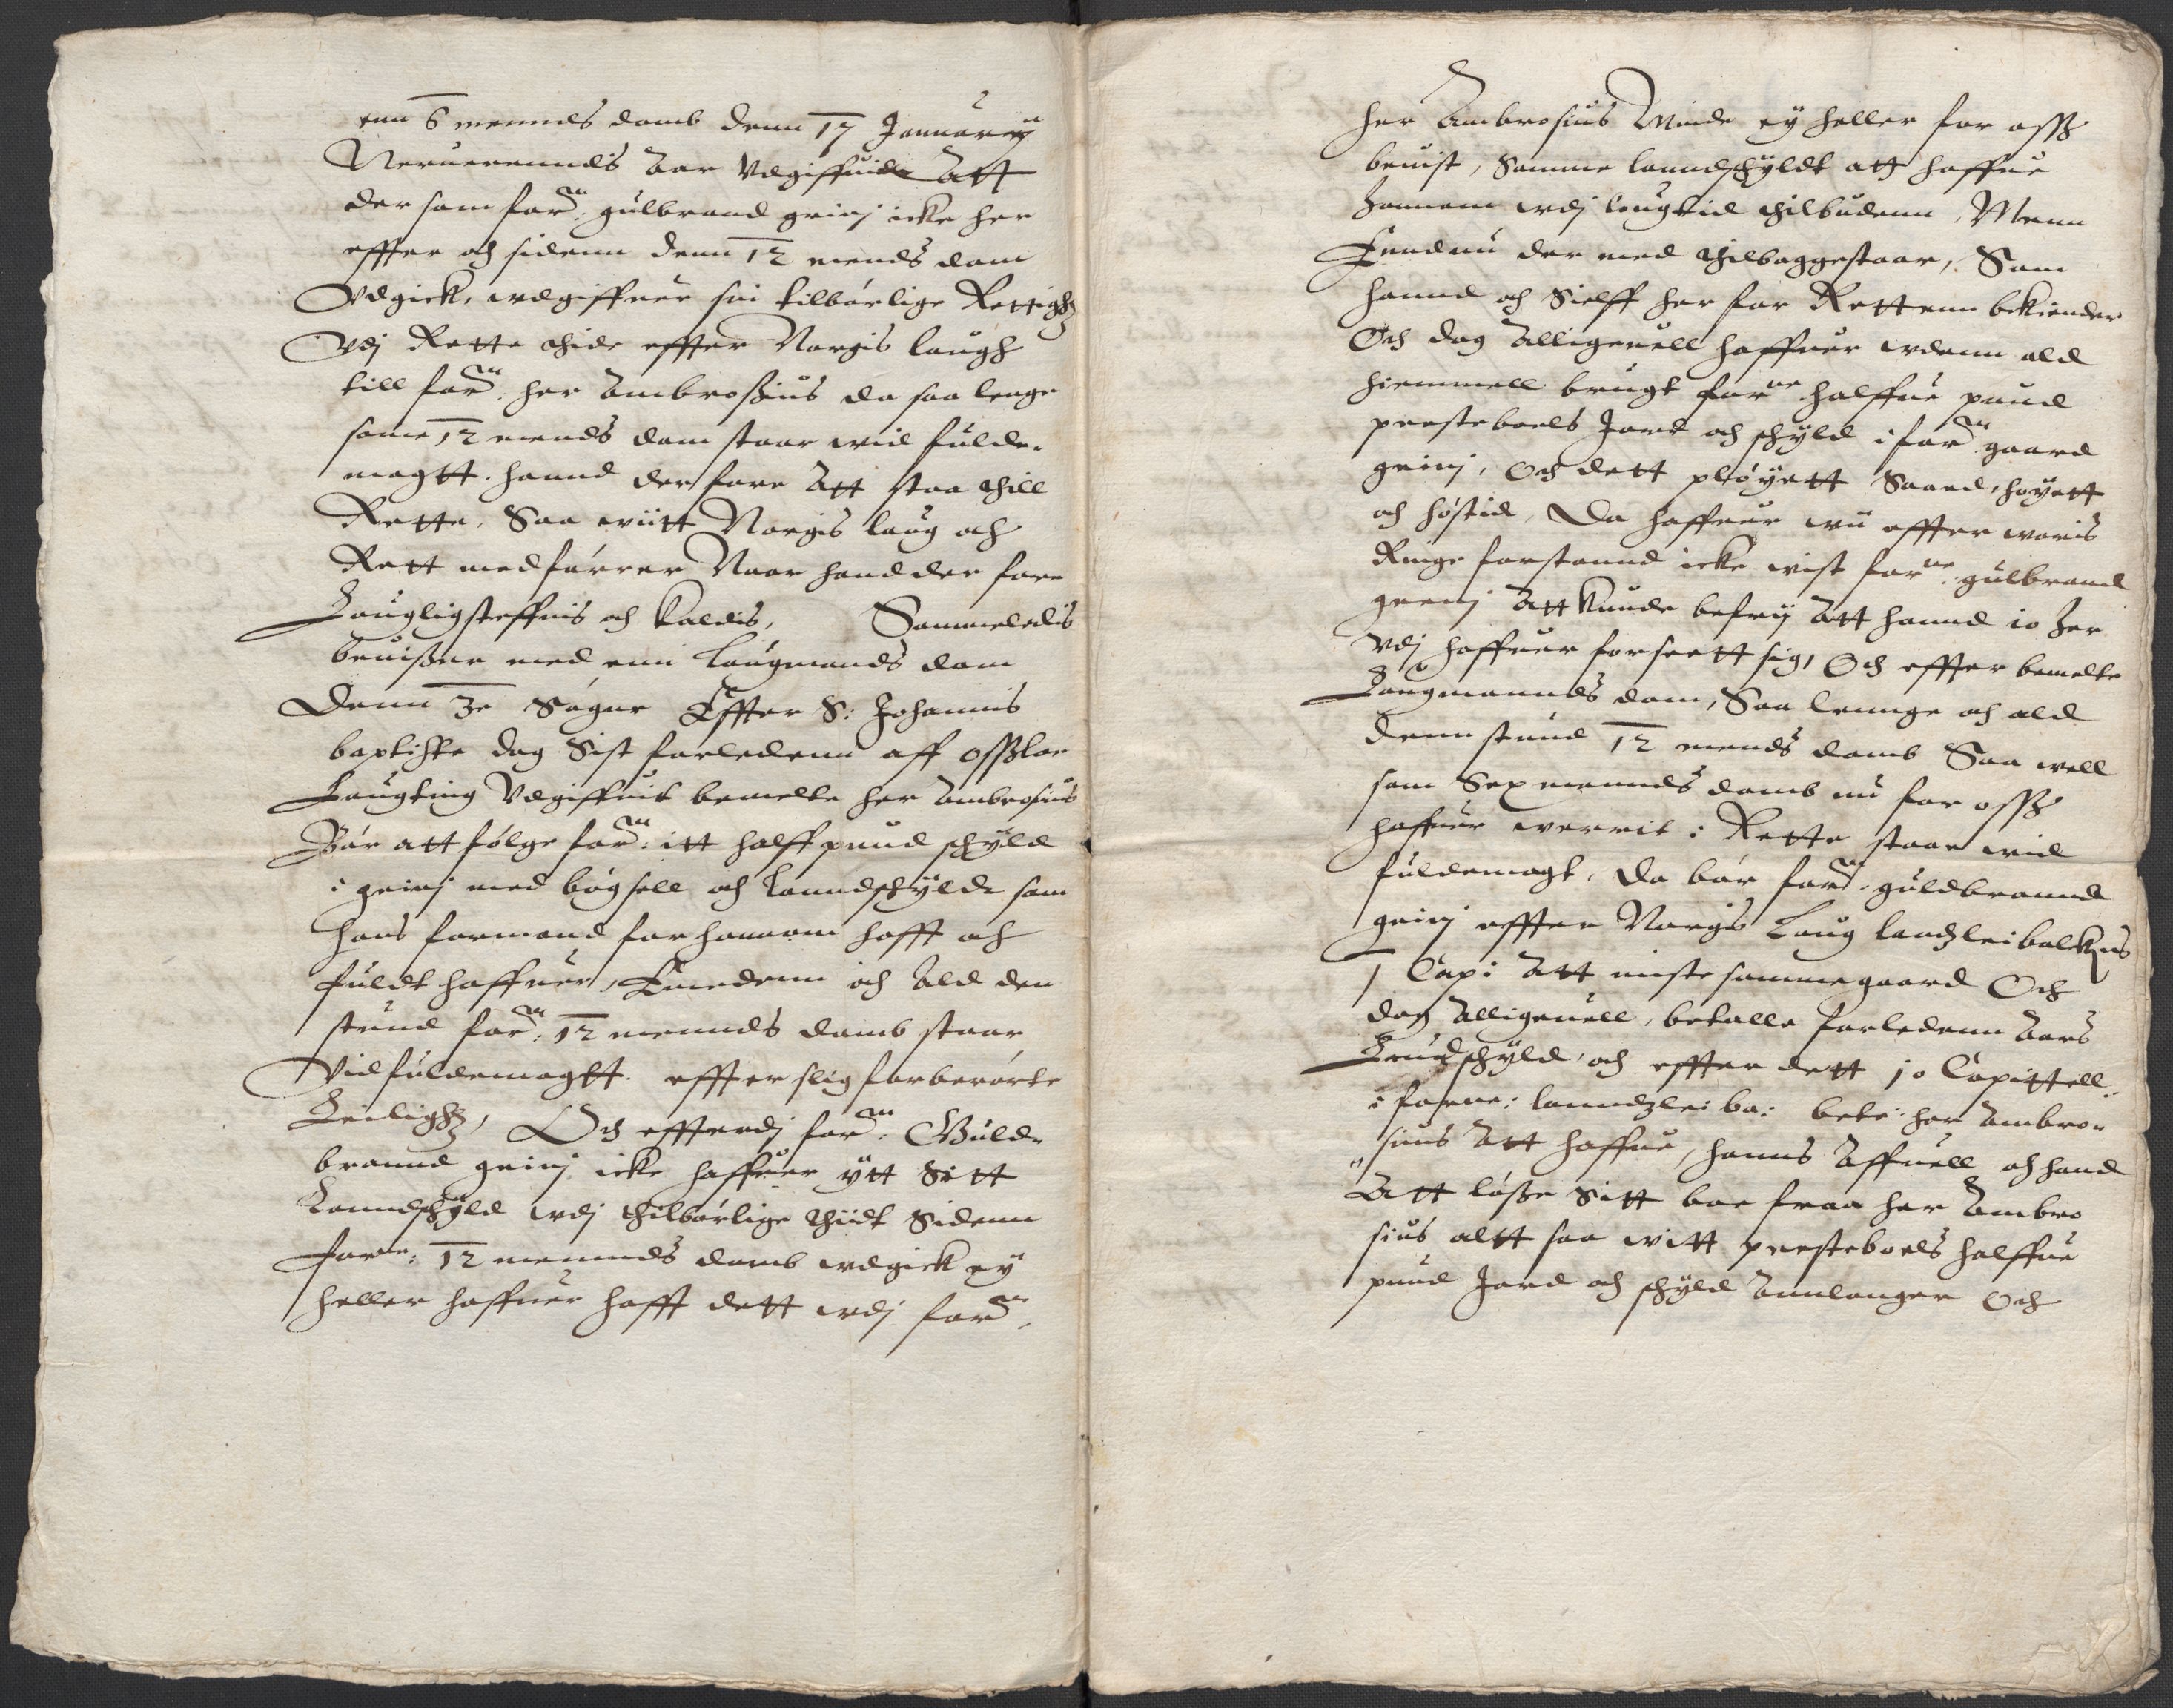 enn 6 mennds domb denn 17 Januarij
Neruerenndis Aar Vdgiffuidt Att
der som forne: gulbrand grinj icke her
effter och sidenn denn 12 mends dom
Vdgick, vdgiffuer sin tilbørlige Rettighz
Vdj Rette thide effter Norgis laugh
till forne. her Ambrosius da saa lenge
some 12 mends dom staar wid fulde-
magtt. hannd der fore Att staa thill
Rette, Saa witt Norgis laug och
Rett medførrer Naar hand der fore
Lougligsteffnis och kaldis, Sammeledis
beuisser med enn Laugmands dom
Denn 3e Søgne Effter S: Johannis
baptiste dag Sist forledenn aff Opsloe
Laugting Vdgiffuit bemelte her Ambrosius
Bør att følge forne: itt halff pund schyld
i grinj med bøgsell och Lanndschyld som
hans formand for hannom hafft och
fuldt haffuer, Enndenn och Ald den
stund forne: 12 mennds domb staar
Vid fuldemagtt. effter slig forberørte
Leilighz, Och effterdj forne: Guld-
brannd grinj icke haffuer ytt Sitt
Lanndschyld vdj thilbørlige thiidt Sidenn
forne: 12 mennds domb vdgick ey
heller haffuer hafft dett vdj forne
her Ambrosius Minde ey heller for oss
beuist, Samme lanndschyldt att haffue
hannem vdj lougtid thilbudenn, Menn
Enndnu der med thilbaggestaar, Som
hannd och Sielff her for Rettenn bekiender
Och dog Alligeuell haffuer vdenn ald
hiemmell brugt forne halffue pund
presteboels Jord och schyld i forne gaard
grinj, Och dett pløyett Saaed, høyett
och høstid, Da haffuer wii effter woris
Ringe forstannd icke wist forne: gulbrand
grinj Att kunde befrij Att hannd io her
Vdj haffuer forseett sig, Och effter bemelte
Laugmannds dom, Saa lennge och ald
denn stund 12 mends domb Saa well
som Sex mennds domb nu for oss
haffuer werrit i Rette staar wid
fuldemagt, da bør forne guldbrannd
grinj effter Norgis Laug landzleibalkens
1 Cap: Att miste samme gaard Och
dog Alligeuell, betalle forledenn Aars
Landschyld, och effter dett 10 Capittell
i forne: lanndzlei ba: bete: her Ambro-
sius Att haffue, hanns Affuell och hand
Att løsse Sitt boe fraa her Ambro
sius altt saa witt presteboels halffue
pund Jord och schyld Annlanger Och